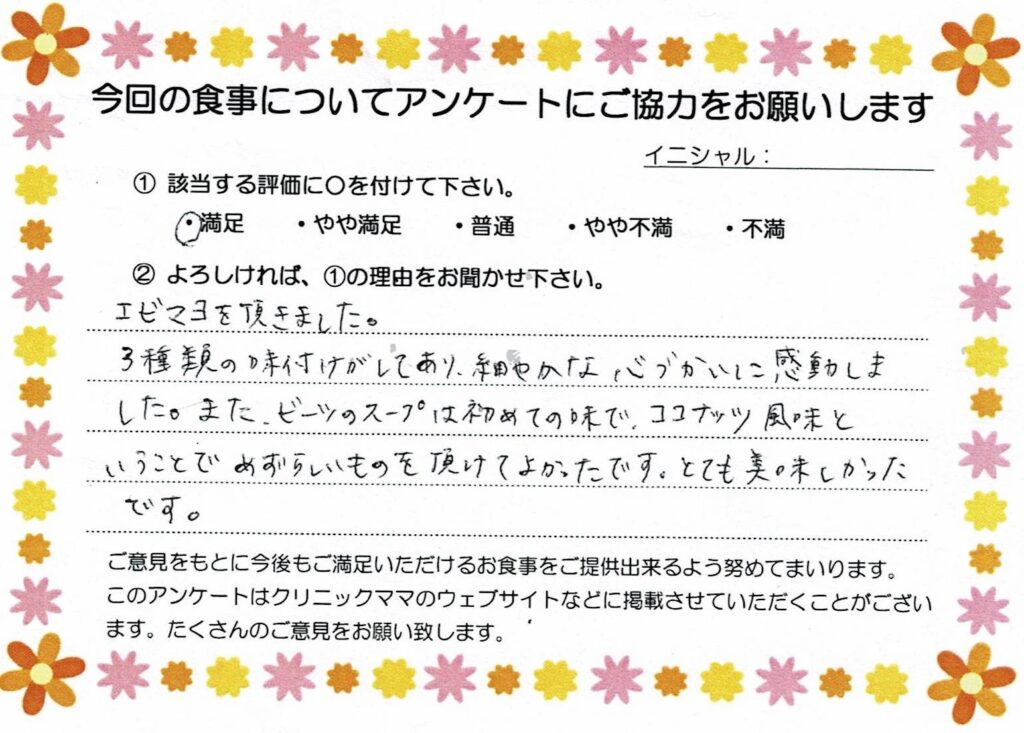 今回の食事についてアンケートにご協力をお願いします
イニシャル：
① 該当する評価に〇を付けて下さい。
・満足 ・やや満足 ・普通 ・やや不満 ・不満
② よろしければ、①の理由をお聞かせ下さい。
エビマヨを頂きました。
3種類の味付けがしてあり、細やかな心づかいに感動しま
した。また、ビーツのスープは初めての味で、ココナッツ風味と
いうことでめずらしいものを頂けてよかったです。とても美味しかった
です。
ご意見をもとに今後もご満足いただけるお食事をご提供出来るよう努めてまいります。
このアンケートはクリニックママのウェブサイトなどに掲載させていただくことがござい
ます。たくさんのご意見をお願い致します。